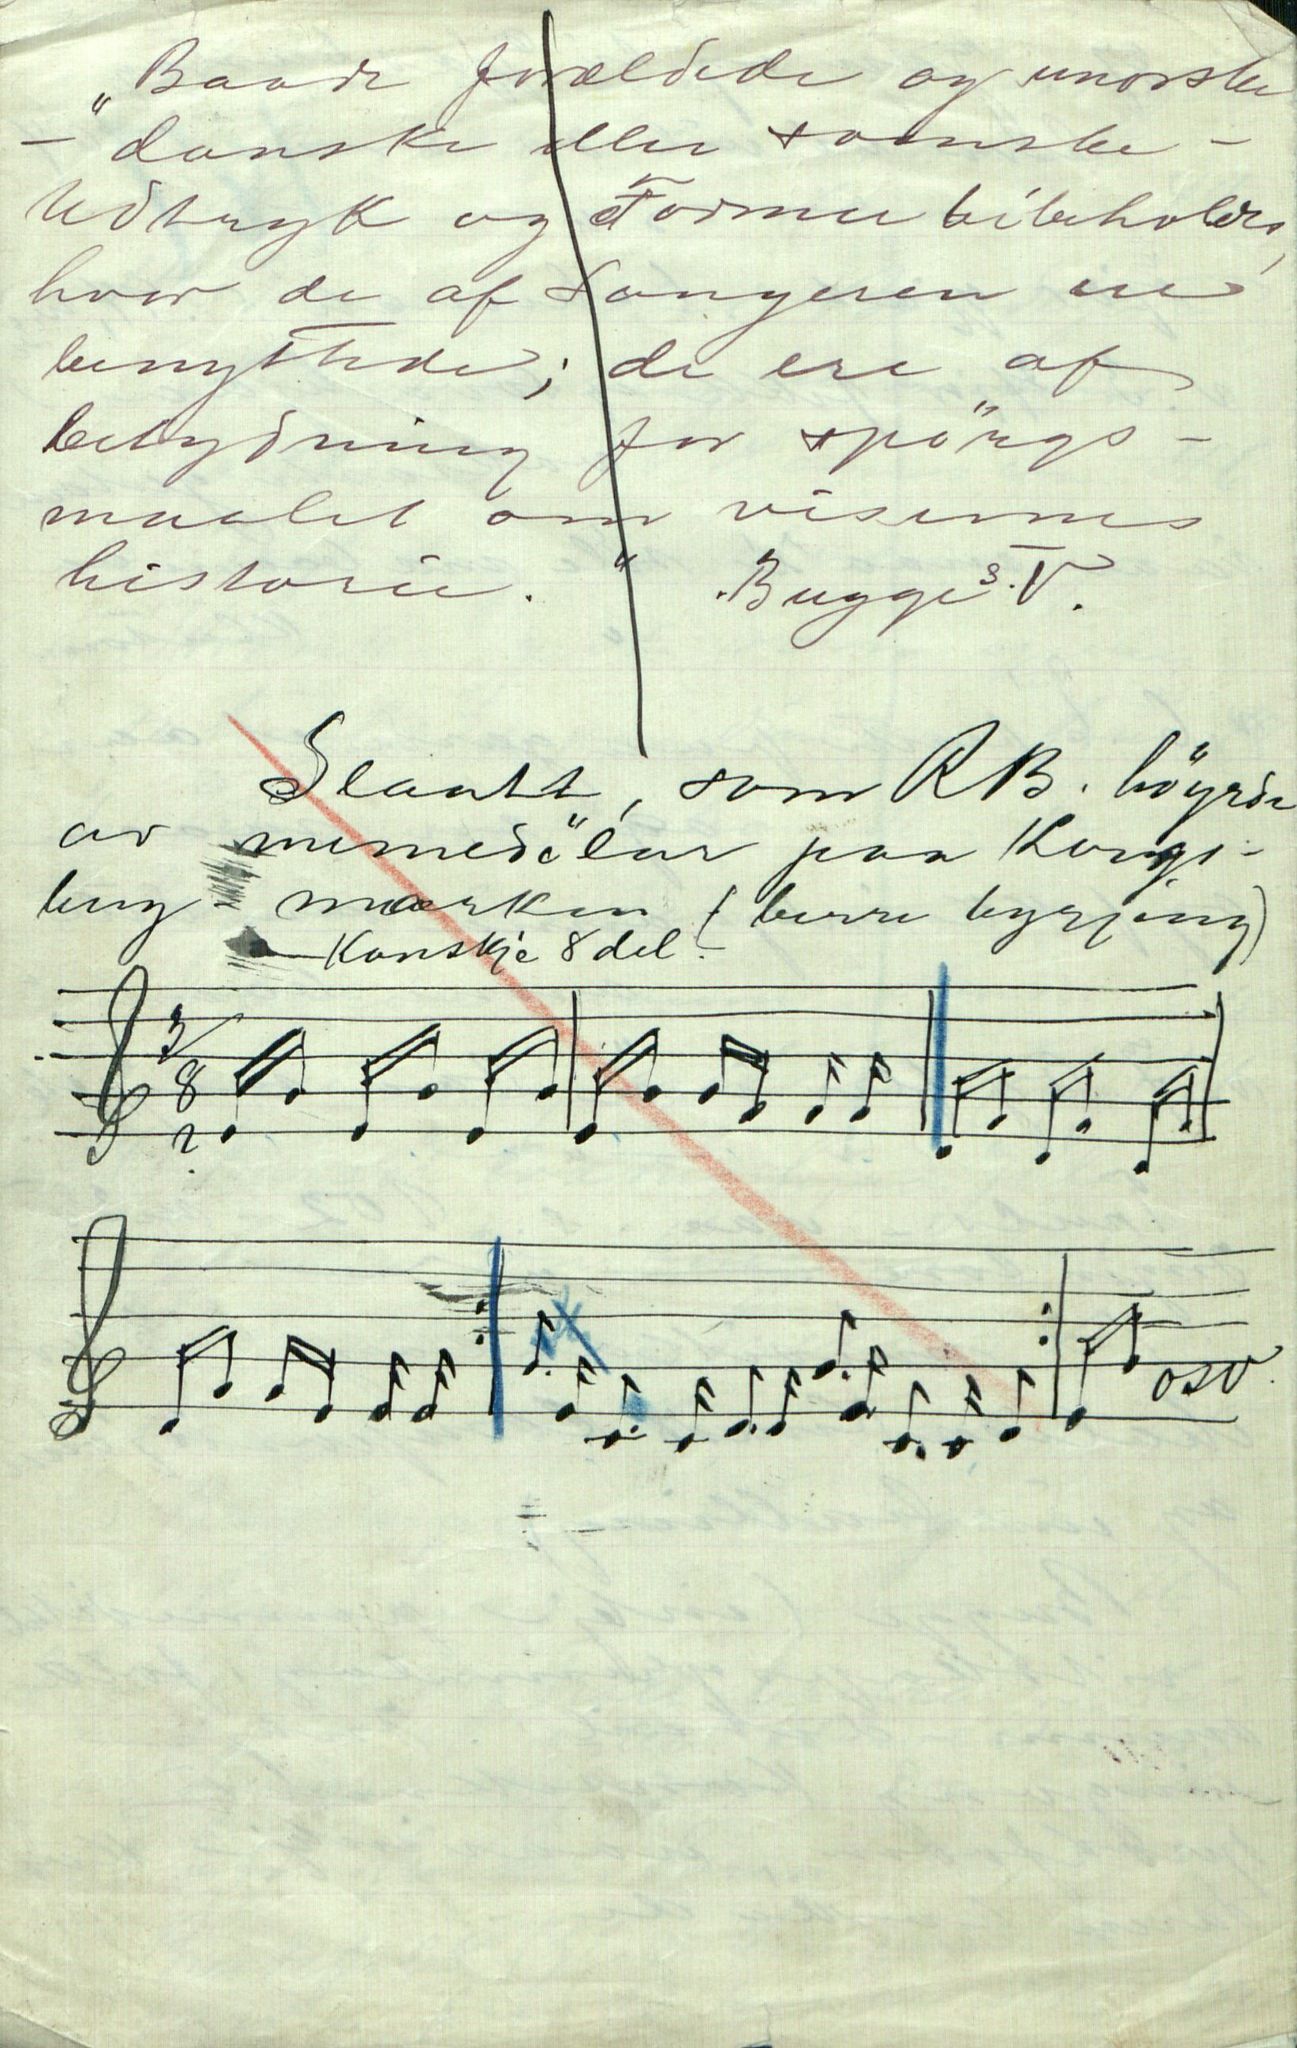 „Baade forældede og unorske
– danske eller svenske –
Udtryk og Former bibeholdes,
hvor de af Sangeren ere
benyttede; de ere af
betydning for spörgs-
maalet om visernes
historie.“ Bugge s. V.
Slaatt, som RB. höyrde
av paa Kongs-
berg-marken (berre byrjing)
Kanskje 8del.
3/8
2
osv.